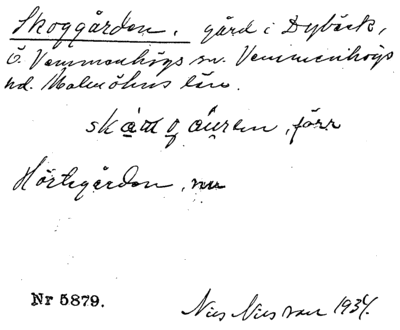 Skoggården, gård i Dybäck,
Ö. Vemmenhögs sn. Vemmenhögs
hd. Malmöhus län.
förr
Hörtegården, nu
Nr 5879.
Nils Nilsson 1934.